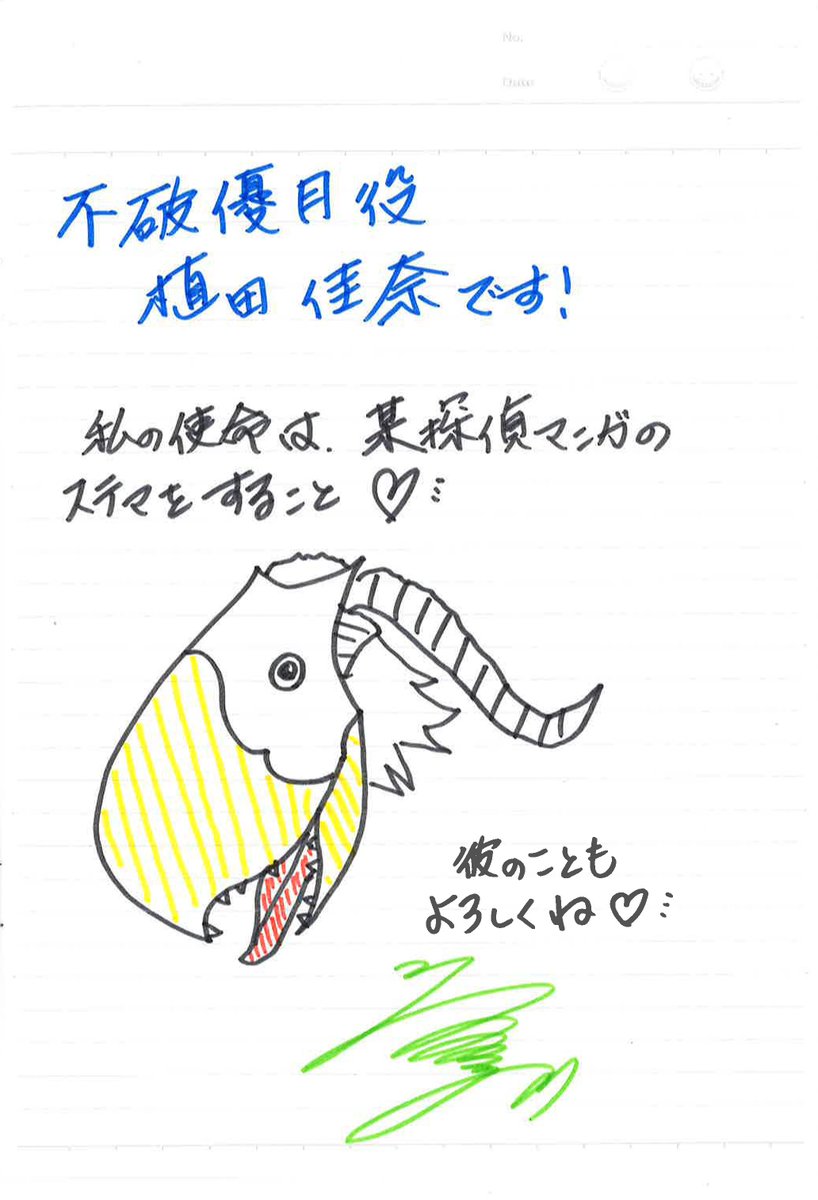 No.
Date
不破優月役
植田佳奈です!
私の使命は、某探偵マンガの
ステマをすること♡
彼のことも
よろしくね♡